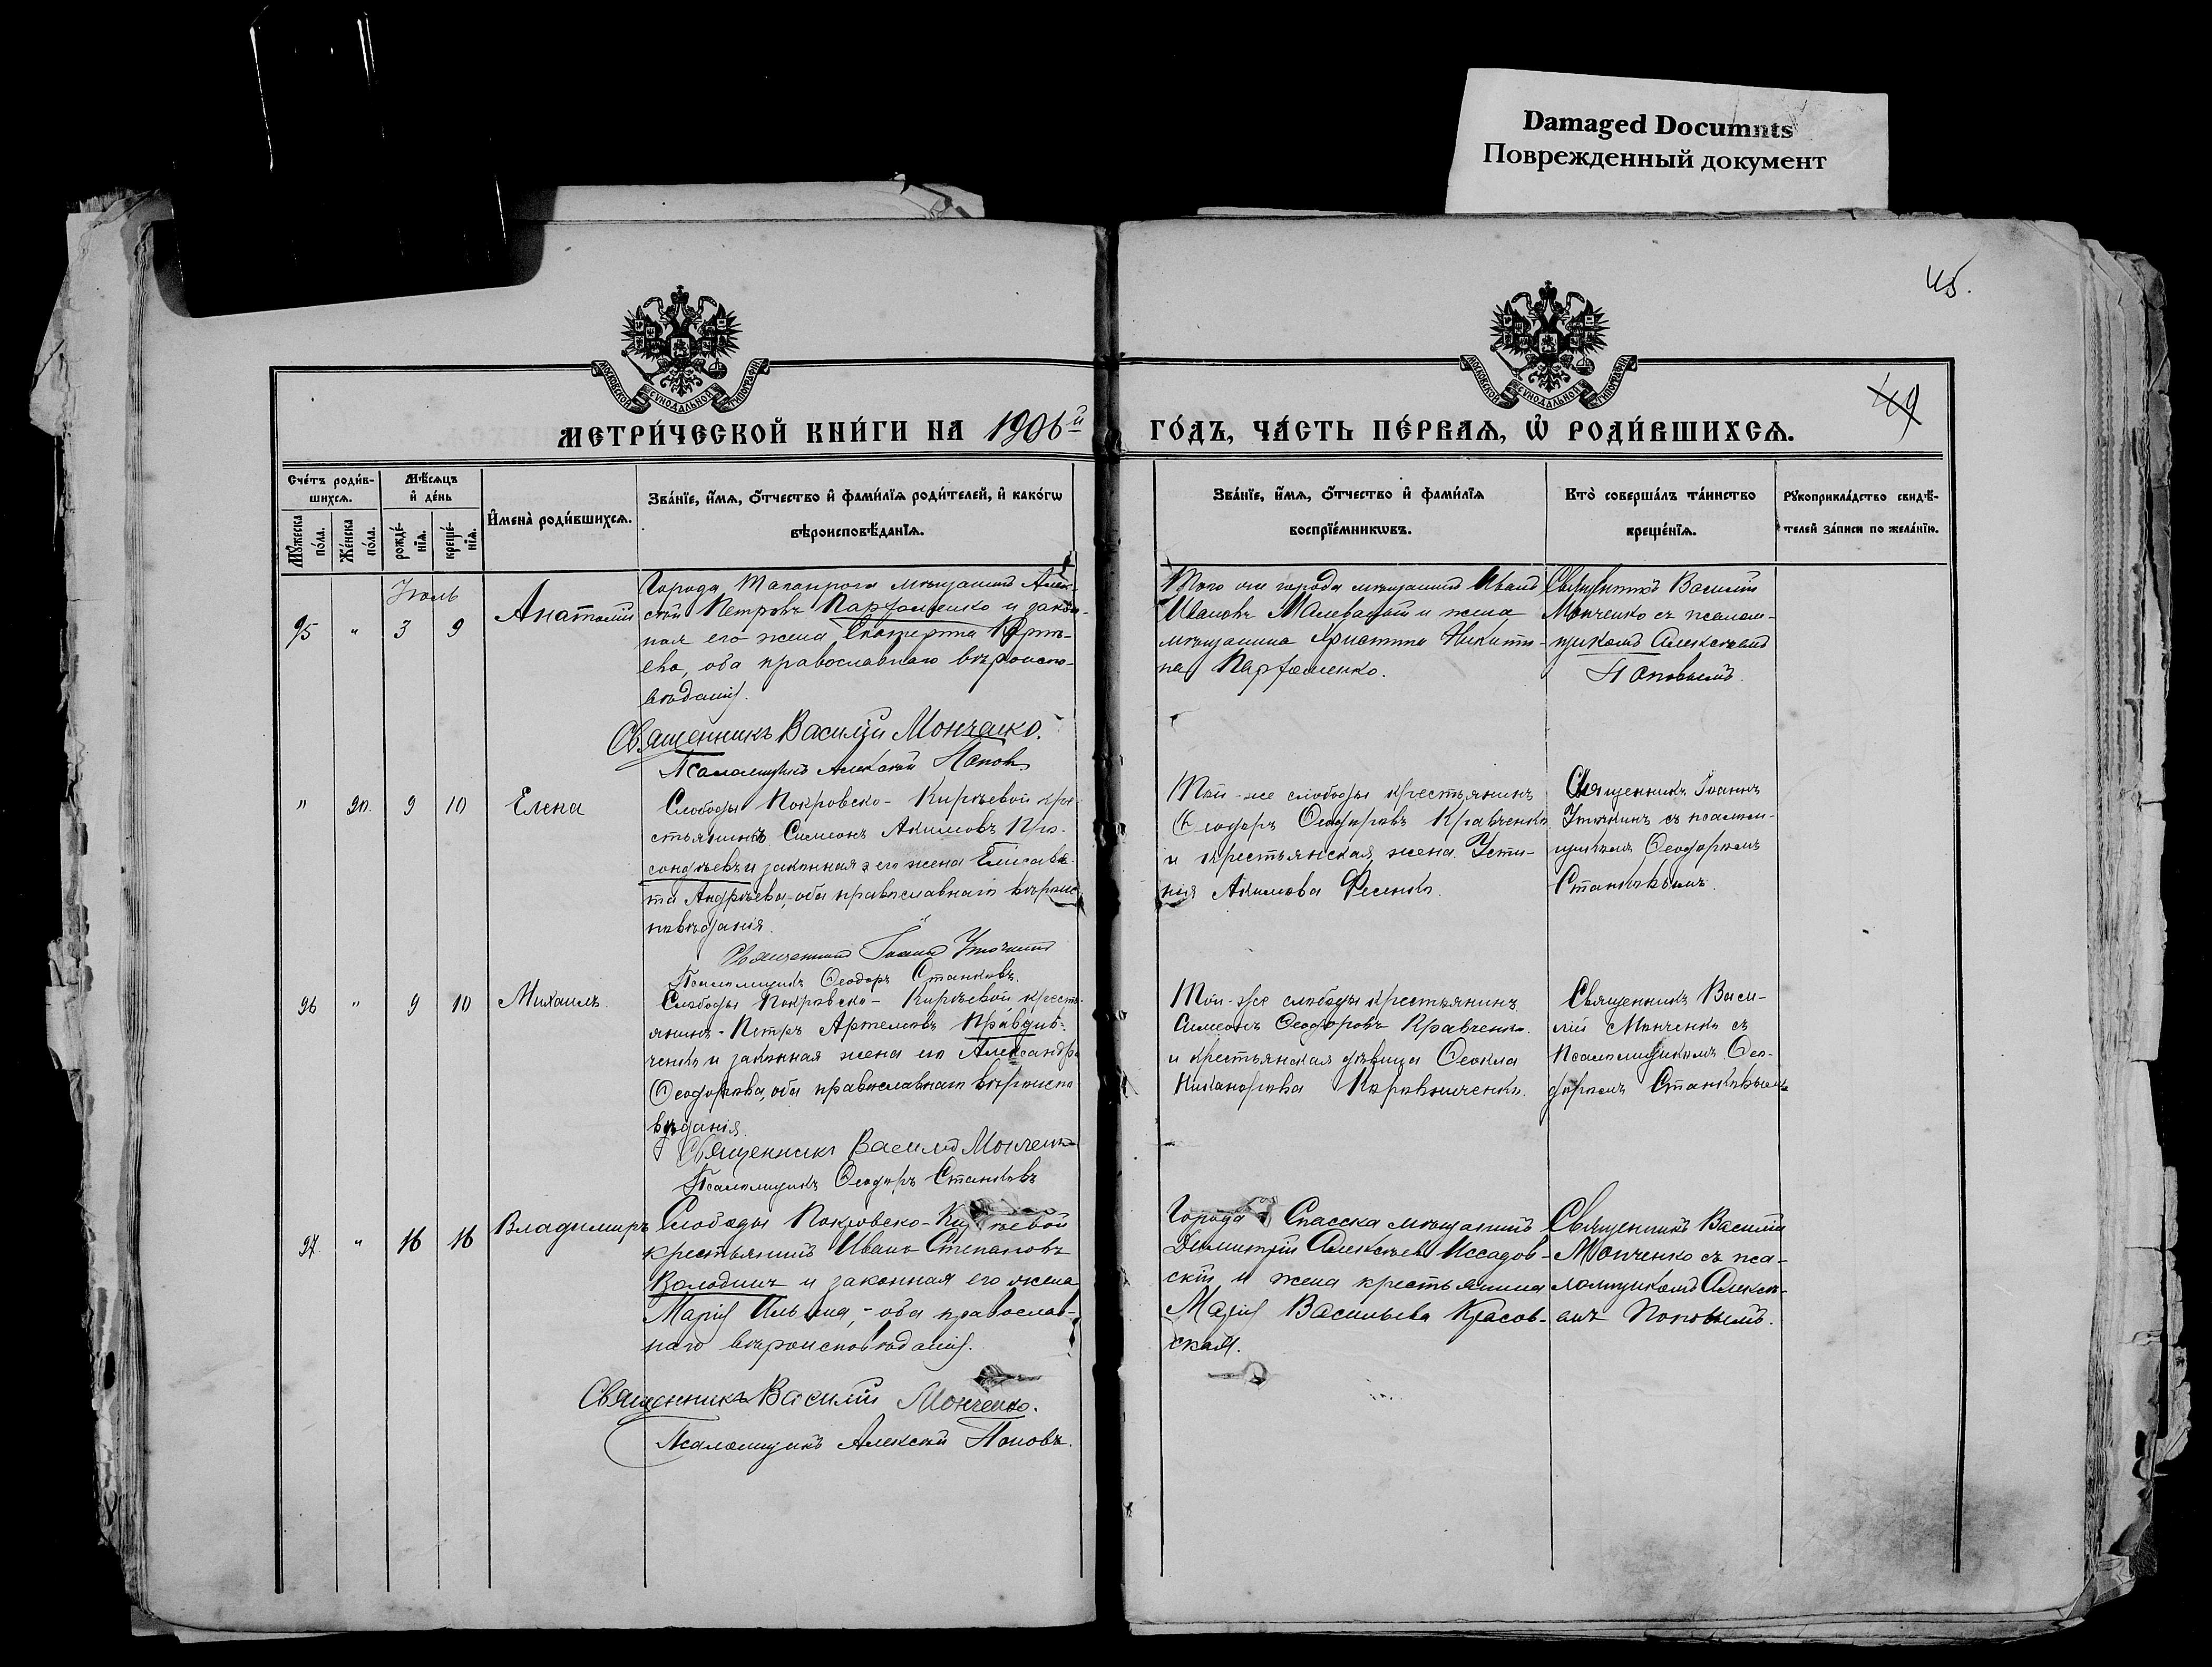 Damaged Documnts
Поврежденный документ
45.
49
МОСКОВСКОЙ СѴНОДАЛЬНОЙ ТИПОГРАФІИ
МОСКОВСКОЙ СѴНОДАЛЬНОЙ ТИПОГРАФІИ
МЕТРИ́ЧЕСКОЙ КНИ́ГИ НА 1906й
ГО́ДЪ, ЧА́СТЬ ПЕ́РВАЯ, Ѡ҆ РОДИ́ВШИХСЯ.
Сче́тъ роди́в-
шихся.
Му́жеска по́ла.
Же́нска по́ла.
Мѣ́сяцъ
и҆ де́нь
рожде́-
нїя.
креще́-
нїя.
И҆мена̀ роди́вшихся.
Зва́нїе, и҆́мя, ѻ҆́тчество и҆ фами́лїя роди́телей, и҆ како́гѡ
вѣроисповѣ́данїя.
Зва́нїе, и҆́мя, ѻ҆́тчество и҆ фами́лїя
воспрїе́мникѡвъ.
Кто̀ соверша́лъ та́инство
креще́нїя.
Рꙋкоприкла́дство свидѣ́-
телей за́писи по жела́нїю.
Іюль
95 " 3 9
Анатолій
Города Таганрога мѣщанинъ Алек-
сѣй Петровъ Парфоменко и закон-
ная его жена Екатерина
ева, оба православнаго вѣроиспо-
вѣданія.
Священникъ Василій Монченко.
Псаломщикъ Алексѣй Поповъ
Того же города мѣщанинъ Иванъ
Ивановъ и жена
мѣщанина Христина Никити-
на Парфоменко.
Священникъ Василій
Монченко съ псалом-
щикомъ Алексѣемъ
Поповымъ.
" 20. 9 10
Елена
Слободы Покровско-Кирѣевой кре-
стьянинъ Симеонъ Акимовъ Про-
и законная его жена Елисаве-
та Андрѣева, оба православнаго вѣроис-
повѣданія.
Священникъ Іоаннъ
Псаломщикъ Ѳеодоръ Станковъ.
Той-же слободы крестьянинъ
Ѳеодоръ Ѳеодоровъ Кравченко
и крестьянская жена Усти-
нія Акимова Фесенко.
Священникъ Іоаннъ
съ псалом-
щикомъ Ѳеодоромъ
Станковымъ.
96 " 9 10
Михаилъ.
Слободы Покровско-Кирѣевой кресть-
янинъ-Петръ Артемовъ Правди-
ченко и законная жена его Александра
Ѳеодорова, оба православнаго вѣроиспо-
вѣданія.
Священникъ Василій Монченко
Псаломщикъ Ѳеодоръ Станковъ
Той-же слободы крестьянинъ
Симеонъ Ѳеодоровъ Кравченко.
и крестьянская дѣвица Ѳеокла
Никанорова
Священникъ Васи-
лій Монченко съ
Псаломщикомъ Ѳео-
доромъ Станковымъ
97. " 16 16
Владимиръ
Слободы Покровско-Кирѣевой
крестьянинъ Иванъ Степановъ
Володинъ и законная его жена
Марія Ильина, - оба православ-
наго вѣроисповѣданія.
Священникъ Василій Монченко.
Псаломщикъ Алексѣй Поповъ.
Города Спасска мѣщанинъ
Димитрій Алексѣевъ Иссадов-
скій и жена крестьянина
Марія Васильева Красов-
ская.
Священникъ Василій
Монченко съ пса-
ломщикомъ Алексѣ-
емъ Поповымъ.